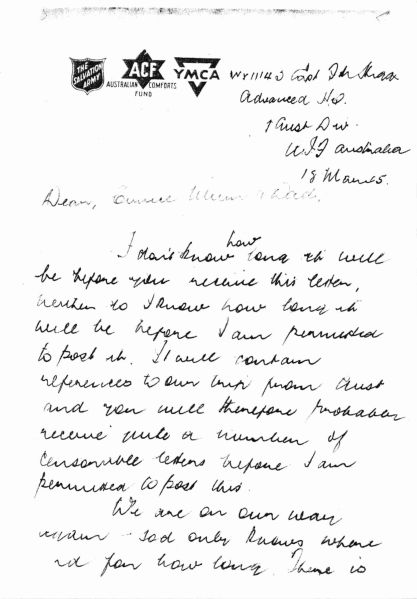 THE SALVATION ARMY
ACF
AUSTRALIAN COMFORTS FUND
YMCA
Capt
Advanced H.Q.
Aust Div
A.I.F Australia
18 Mar 45.
Dear, Mum & Dad,
I don't know how long it will
be before you receive this letter,
neither do I know how long it
will be before I am permitted
to post it. It will contain
references to our trip from Aust
and you will therefore probably
receive quite a number of
censorable letters before I am
permitted to post this.
We are on our way
again - God only knows where
nd for how long. There is